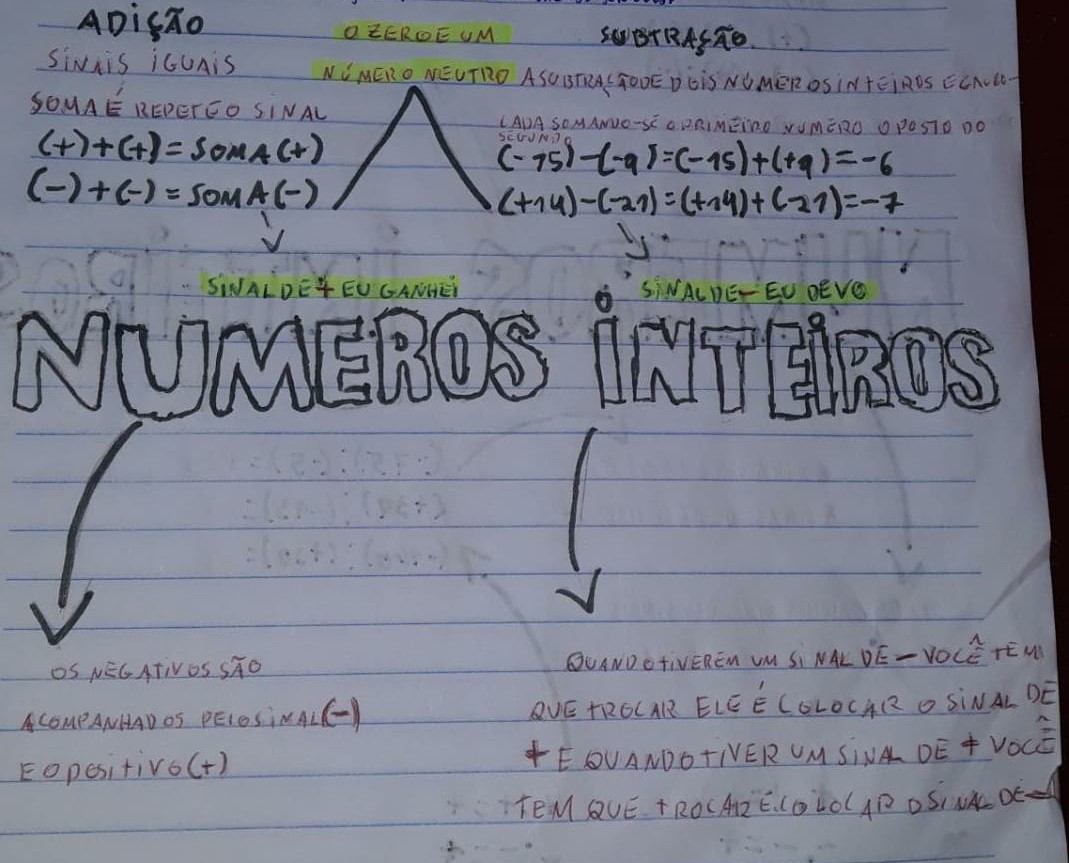 ADIÇÃO
SINAIS IGUAIS
SOMA É REPETE O SINAL
(+)+(+)= SOMA(+)
(-)+(-)= SOMA(-)
O ZERO E UM
NÚMERO NEUTRO
SUBTRAÇÃO
A SUBTRAÇÃO DE DOIS NÚMEROS INTEIROS E CALCU-
LADA SOMANDO-SE O PRIMEIRO NUMERO OPOSTO DO
SEGUNDO
(-15)-(-9)=(-15)+(+9)=-6
(+14)-(-21)=(+14)+(-21)=-7
SINAL DE + EU GANHEI
SINAL DE - EU DEVO
NUMEROS INTEIROS
OS NEGATIVOS SÃO
ACOMPANHADOS PELO SINAL(-)
E O POSITIVO(+)
QUANDO TIVEREM UM SINAL DE - VOCÊ TEM
QUE TROCAR ELE É COLOCAR O SINAL DE
+ E QUANDO TIVER UM SINAL DE + VOCÊ
TEM QUE TROCAR E COLOCAR O SINAL DE -